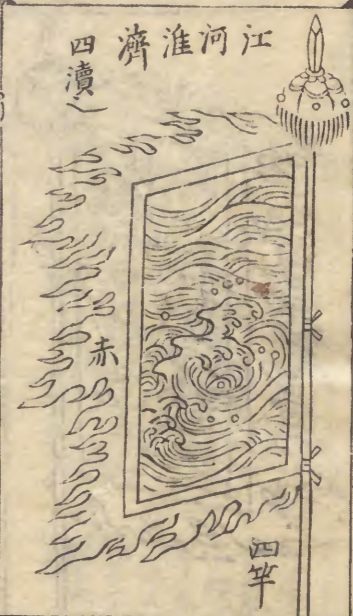 江河淮濟
四瀆
赤
四竿